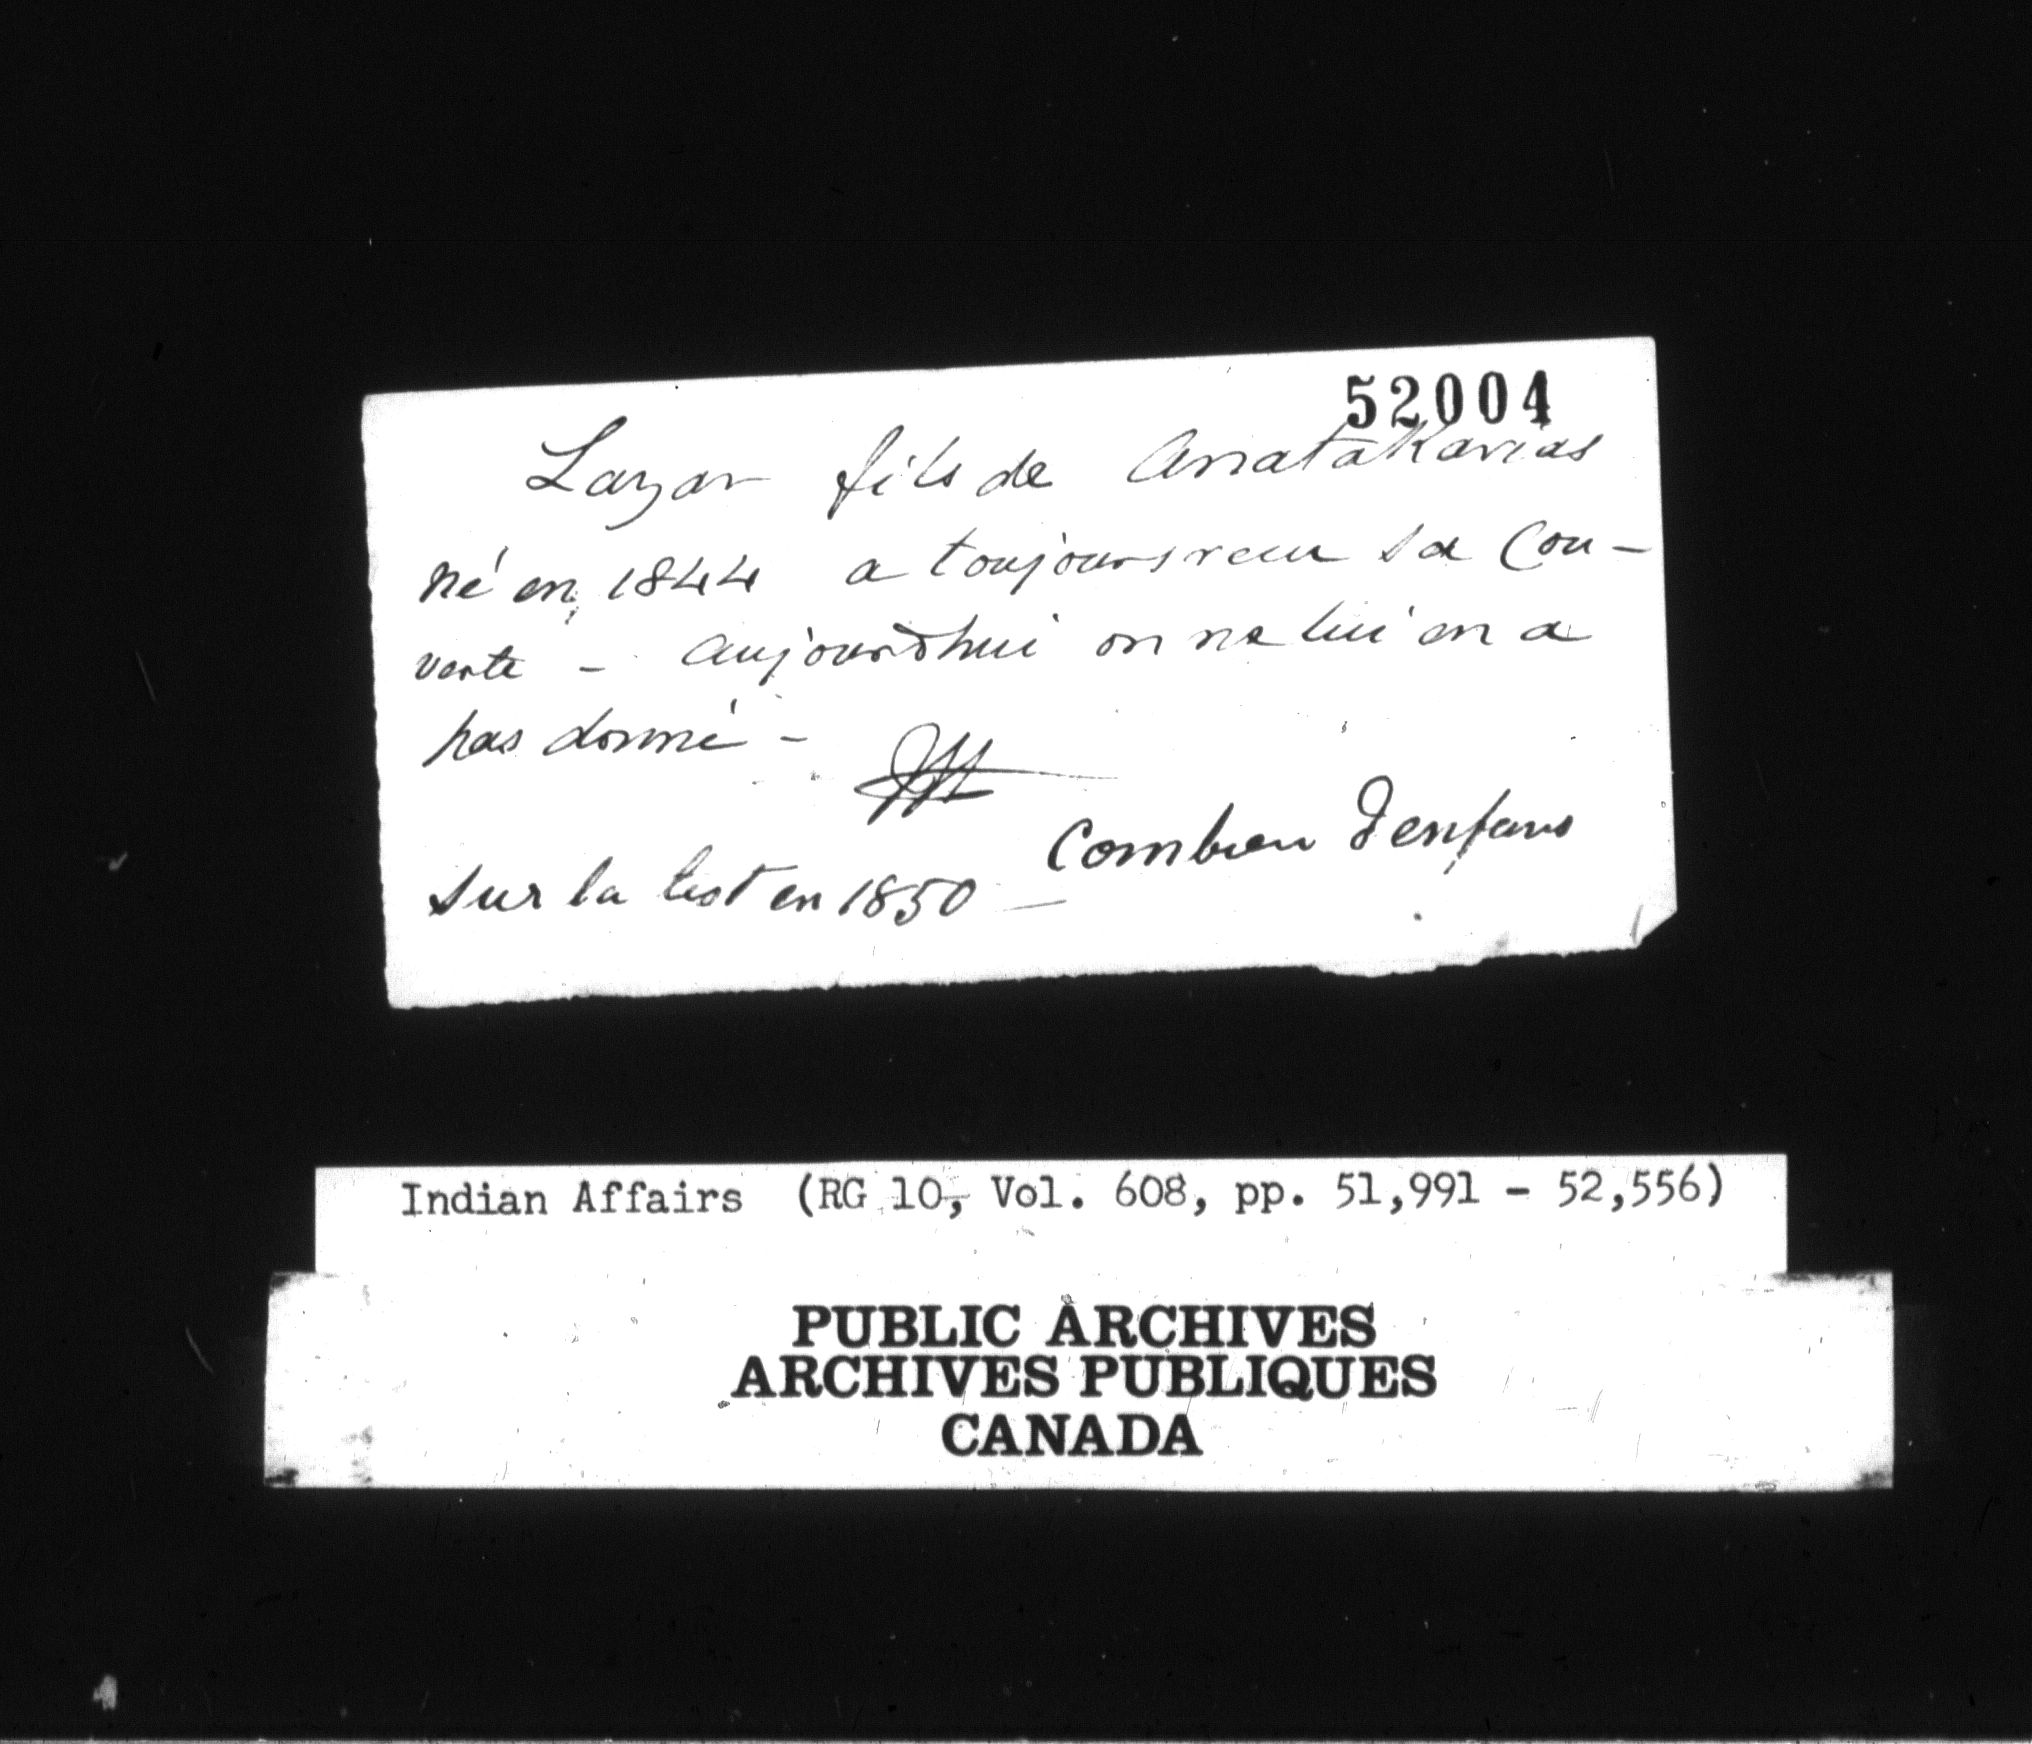 52004
Lazar fils de Anatakarias
né en 1844 a toujours recu sa Cou-
verte - aujourdhui on ne lui en a
pas donné -
Combien d'enfans
sur la list en 1850 -
Indian Affairs (RG 10, Vol. 608, pp. 51,991 - 52,556)
PUBLIC ARCHIVES
ARCHIVES PUBLIQUES
CANADA